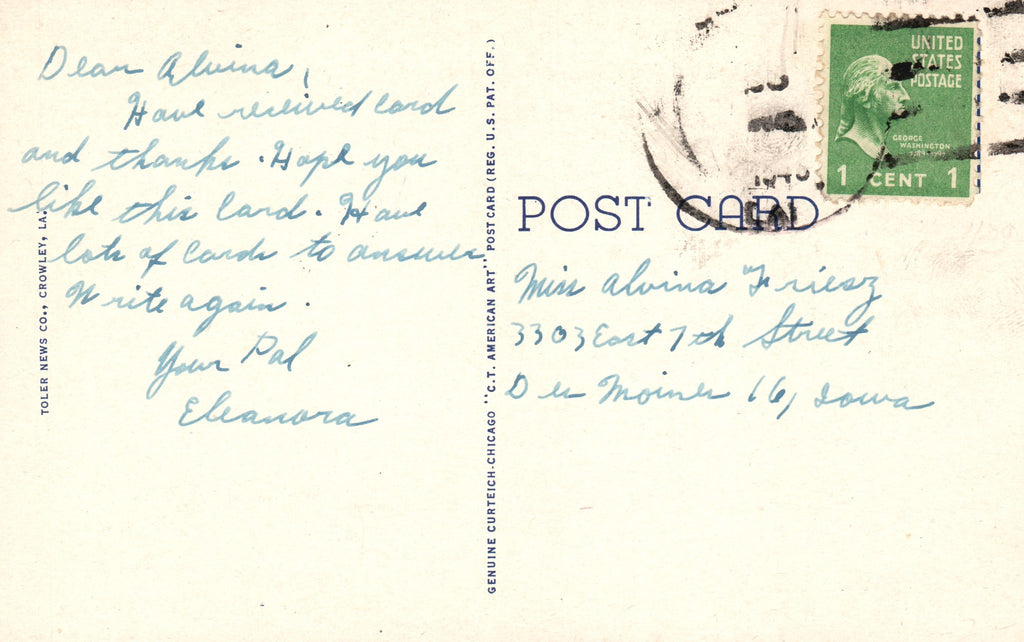 Dear Alvina,
Have received card
and thanks. Hope you
like this card. Have
lots of cards to answer
Write again.
Your Pal
Eleanora
TOLER NEWS CO., CROWLEY, LA.
GENUINE CURTEICH-CHICAGO "C.T. AMERICAN ART" POST CARD (REG. U.S. PAT. OFF.)
UNITED
STATES
POSTAGE
GEORGE
WASHINGTON
1789-1797
1 CENT 1
POST CARD
Miss Alvina Friesz
3303 East 7th Street
Des Moines 16, Iowa